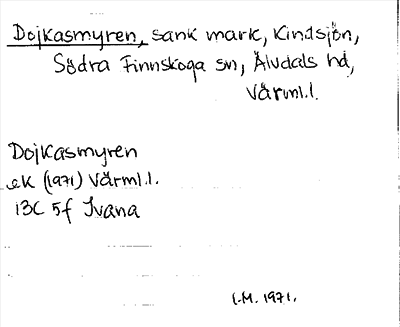 Dojkasmyren, sank mark, Kindsjön,
Södra Finnskoga sn, Älvdals hd,
Värml.l.
Dojkasmyren
ek (1971) Värml.l.
13C 5f Ivana
I.M. 1971.